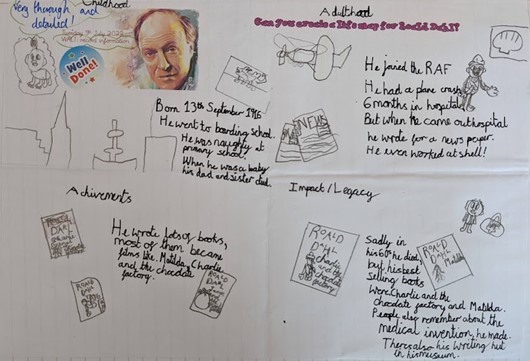 Very thorough and
detailed!
Childhood
Well
Done!
Born 13th September 1916
He went to boarding school.
He was naughty at
primary school.
When he was a baby
his dad and sister died.
Adulthood
Can you create a life map for Roald Dahl?
He joined the RAF
He had a plane crash
6 months in hospital,
But when he came out hospital
he wrote for a news peper.
He even worked at shell!
NEWS
Achivements
He wrote lots of books,
most of them became
films like. Matilda, Charlie
and the chocolate
factory.
ROALD
DAHL
Impact/Legacy
ROALD
DAHL
Charlie
and the
Sadly in
his 60s he died,
but his best
selling books
Were Charlie and the
Chocolate factory and Matilda.
People also remember about the
medical invention, he made.
Theres also his writing hut
in his museum.
ROALD
DAHL
Matilda